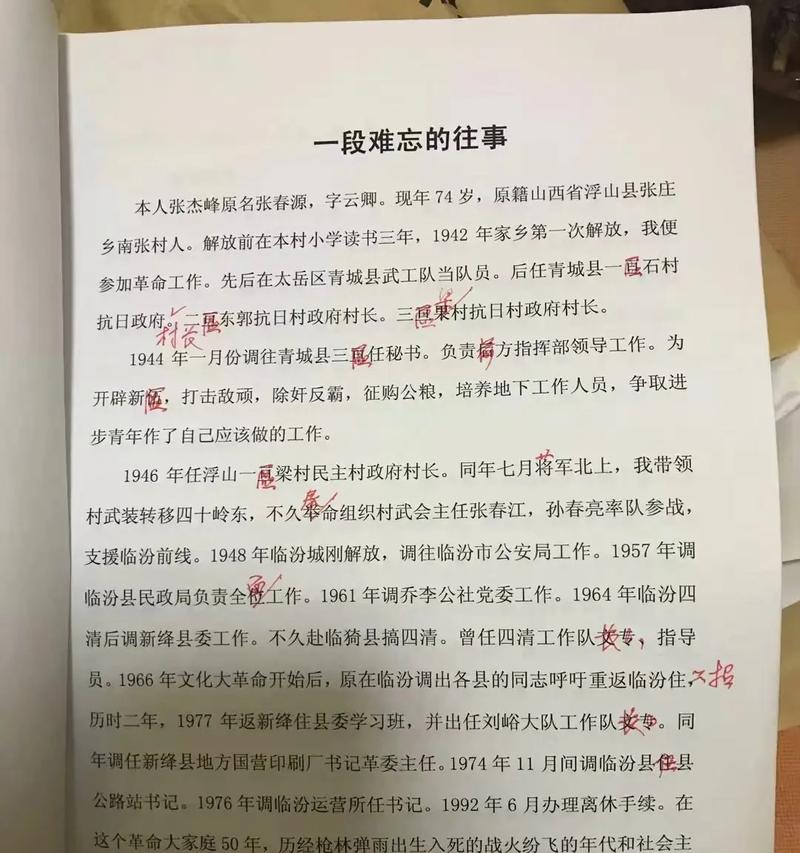 一段难忘的往事
本人张杰峰原名张春源，字云卿。现年 74 岁，原籍山西省浮山县张庄
乡南张村人。解放前在本村小学读书三年，1942 年家乡第一次解放，我便
参加革命工作。先后在太岳区青城县武工队当队员。后任青城县一区石村
抗日政府村长。二区东郭抗日村政府村长。三区梁村抗日村政府村长。
1944 年一月份调往青城县三区任秘书。负责方指挥部领导工作。为
开辟新区，打击敌顽，除奸反霸，征购公粮，培养地下工作人员，争取进
步青年作了自己应该做的工作。
1946 年任浮山一区梁村民主村政府村长。同年七月蒋军北上，我带领
村武装转移四十岭东，不久奉命组织村武会主任张春江，孙春亮率队参战，
支援临汾前线。1948 年临汾城刚解放，调往临汾市公安局工作。1957 年调
临汾县民政局负责全面工作。1961 年调乔李公社党委工作。1964 年临汾四
清后调新绛县委工作。不久赴临猗县搞四清。曾任四清工作队长，指导
员。1966 年文化大革命开始后，原在临汾调出各县的同志呼吁重返临汾住，
历时二年，1977 年返新绛住县委学习班，并出任刘峪大队工作队长。同
年调任新绛县地方国营印刷厂书记革委主任。1974 年 11 月间调临汾县任县
公路站书记。1976 年调临汾运营所任书记。1992 年 6 月办理离休手续。在
这个革命大家庭 50 年，历经枪林弹雨出生入死的战火纷飞的年代和社会主